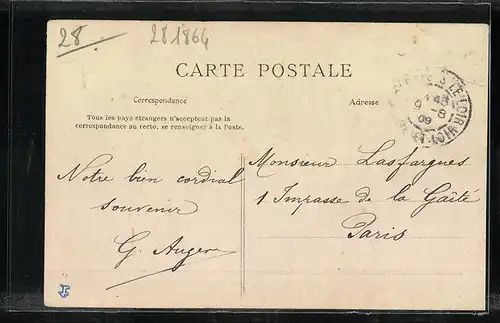 28
281864
CARTE POSTALE
Correspondance
Adresse
Tous les pays étrangers n'acceptent pas la
correspondance au recto, se renseigner à la Poste.
Notre bien cordial
souvenir
G. Auger
Monsieur Lasfargues
1 Impasse de la Gaîté
Paris